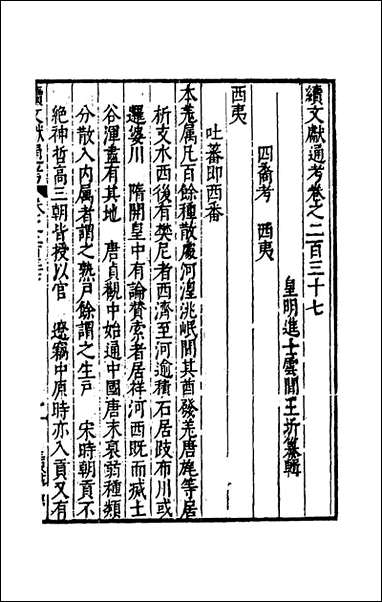 續文獻通考卷之二百三十七
皇明進士雲間王圻纂輯
四裔考 西夷
西夷
吐蕃即西番
本羌屬凡百餘種散處河湟洮岷間其酋發羌唐旄等居
析支水西後有樊尼者西濟至河逾積石居跂布川或
邏娑川 隋開皇中有論贊索者居牂河西既而滅土
谷渾盡有其地 唐貞觀中始通中國唐末衰弱種類
分散入內屬者謂之熟戶餘謂之生戶 宋時朝貢不
絶神哲高三朝皆授以官 遼竊中原時亦入貢又有
續文獻通考